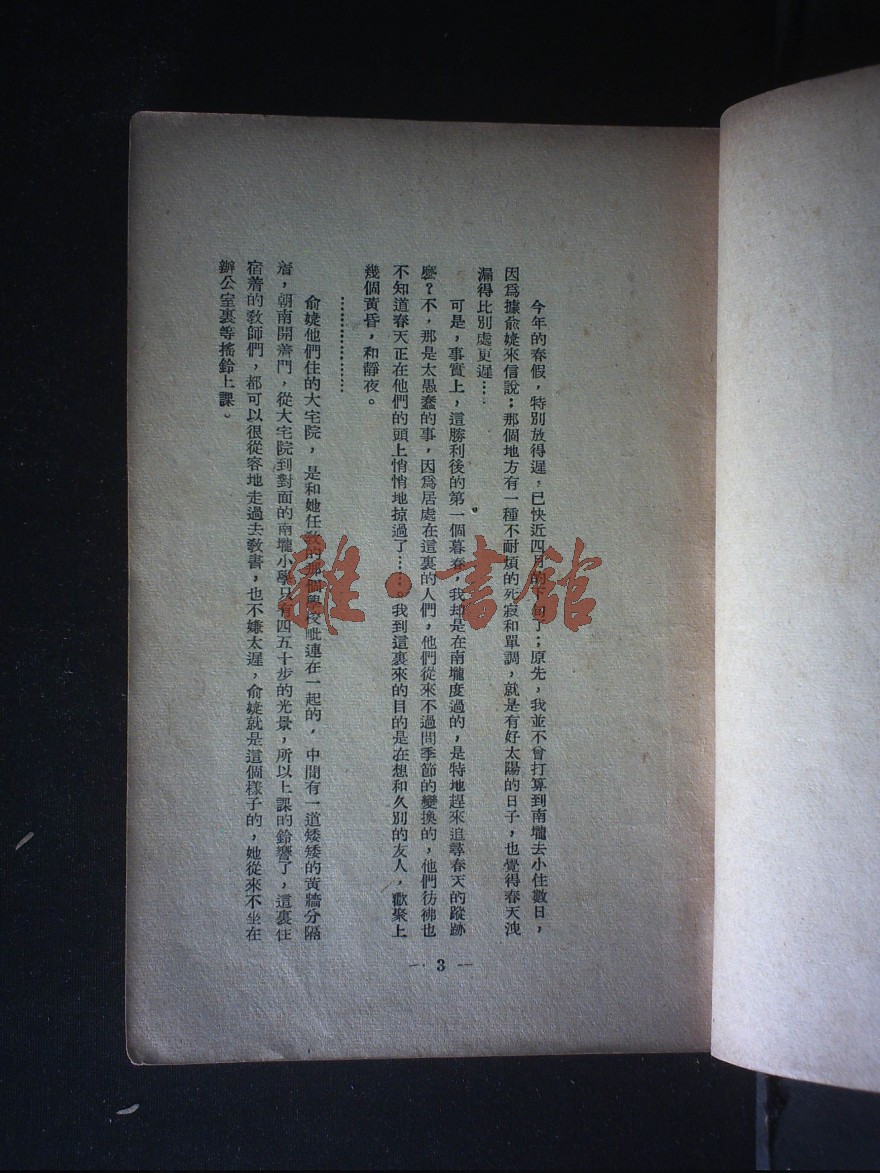 今年的春假，特別放得遲，已快近四月的下旬了；原先，我並不曾打算到南壠去小住數日，
因爲據俞婕來信說；那個地方有一種不耐煩的死寂和單調，就是有好太陽的日子，也覺得春天洩
漏得比別處更遲……
可是，事實上，這勝利後的第一個暮春，我却是在南壠度過的，是特地趕來追尋春天的蹤跡
麽？不，那是太愚蠢的事，因爲居處在這裏的人們，他們從來不過問季節的變換的，他們彷彿也
不知道春天正在他們的頭上悄悄地掠過了……。我到這裏來的目的是在想和久別的友人，歡聚上
幾個黃昏，和靜夜。
…………………
俞婕他們住的大宅院，是和她任敎的那個學校毗連在一起的，中間有一道矮矮的黃牆分隔
着，朝南開着門，從大宅院到對面的南壠小學只有四五十步的光景，所以上課的鈴響了，這裏住
宿着的敎師們，都可以很從容地走過去敎書，也不嫌太遲，俞婕就是這個樣子的，她從來不坐在
辦公室裏等搖鈴上課。
— 3 —
雜·書館